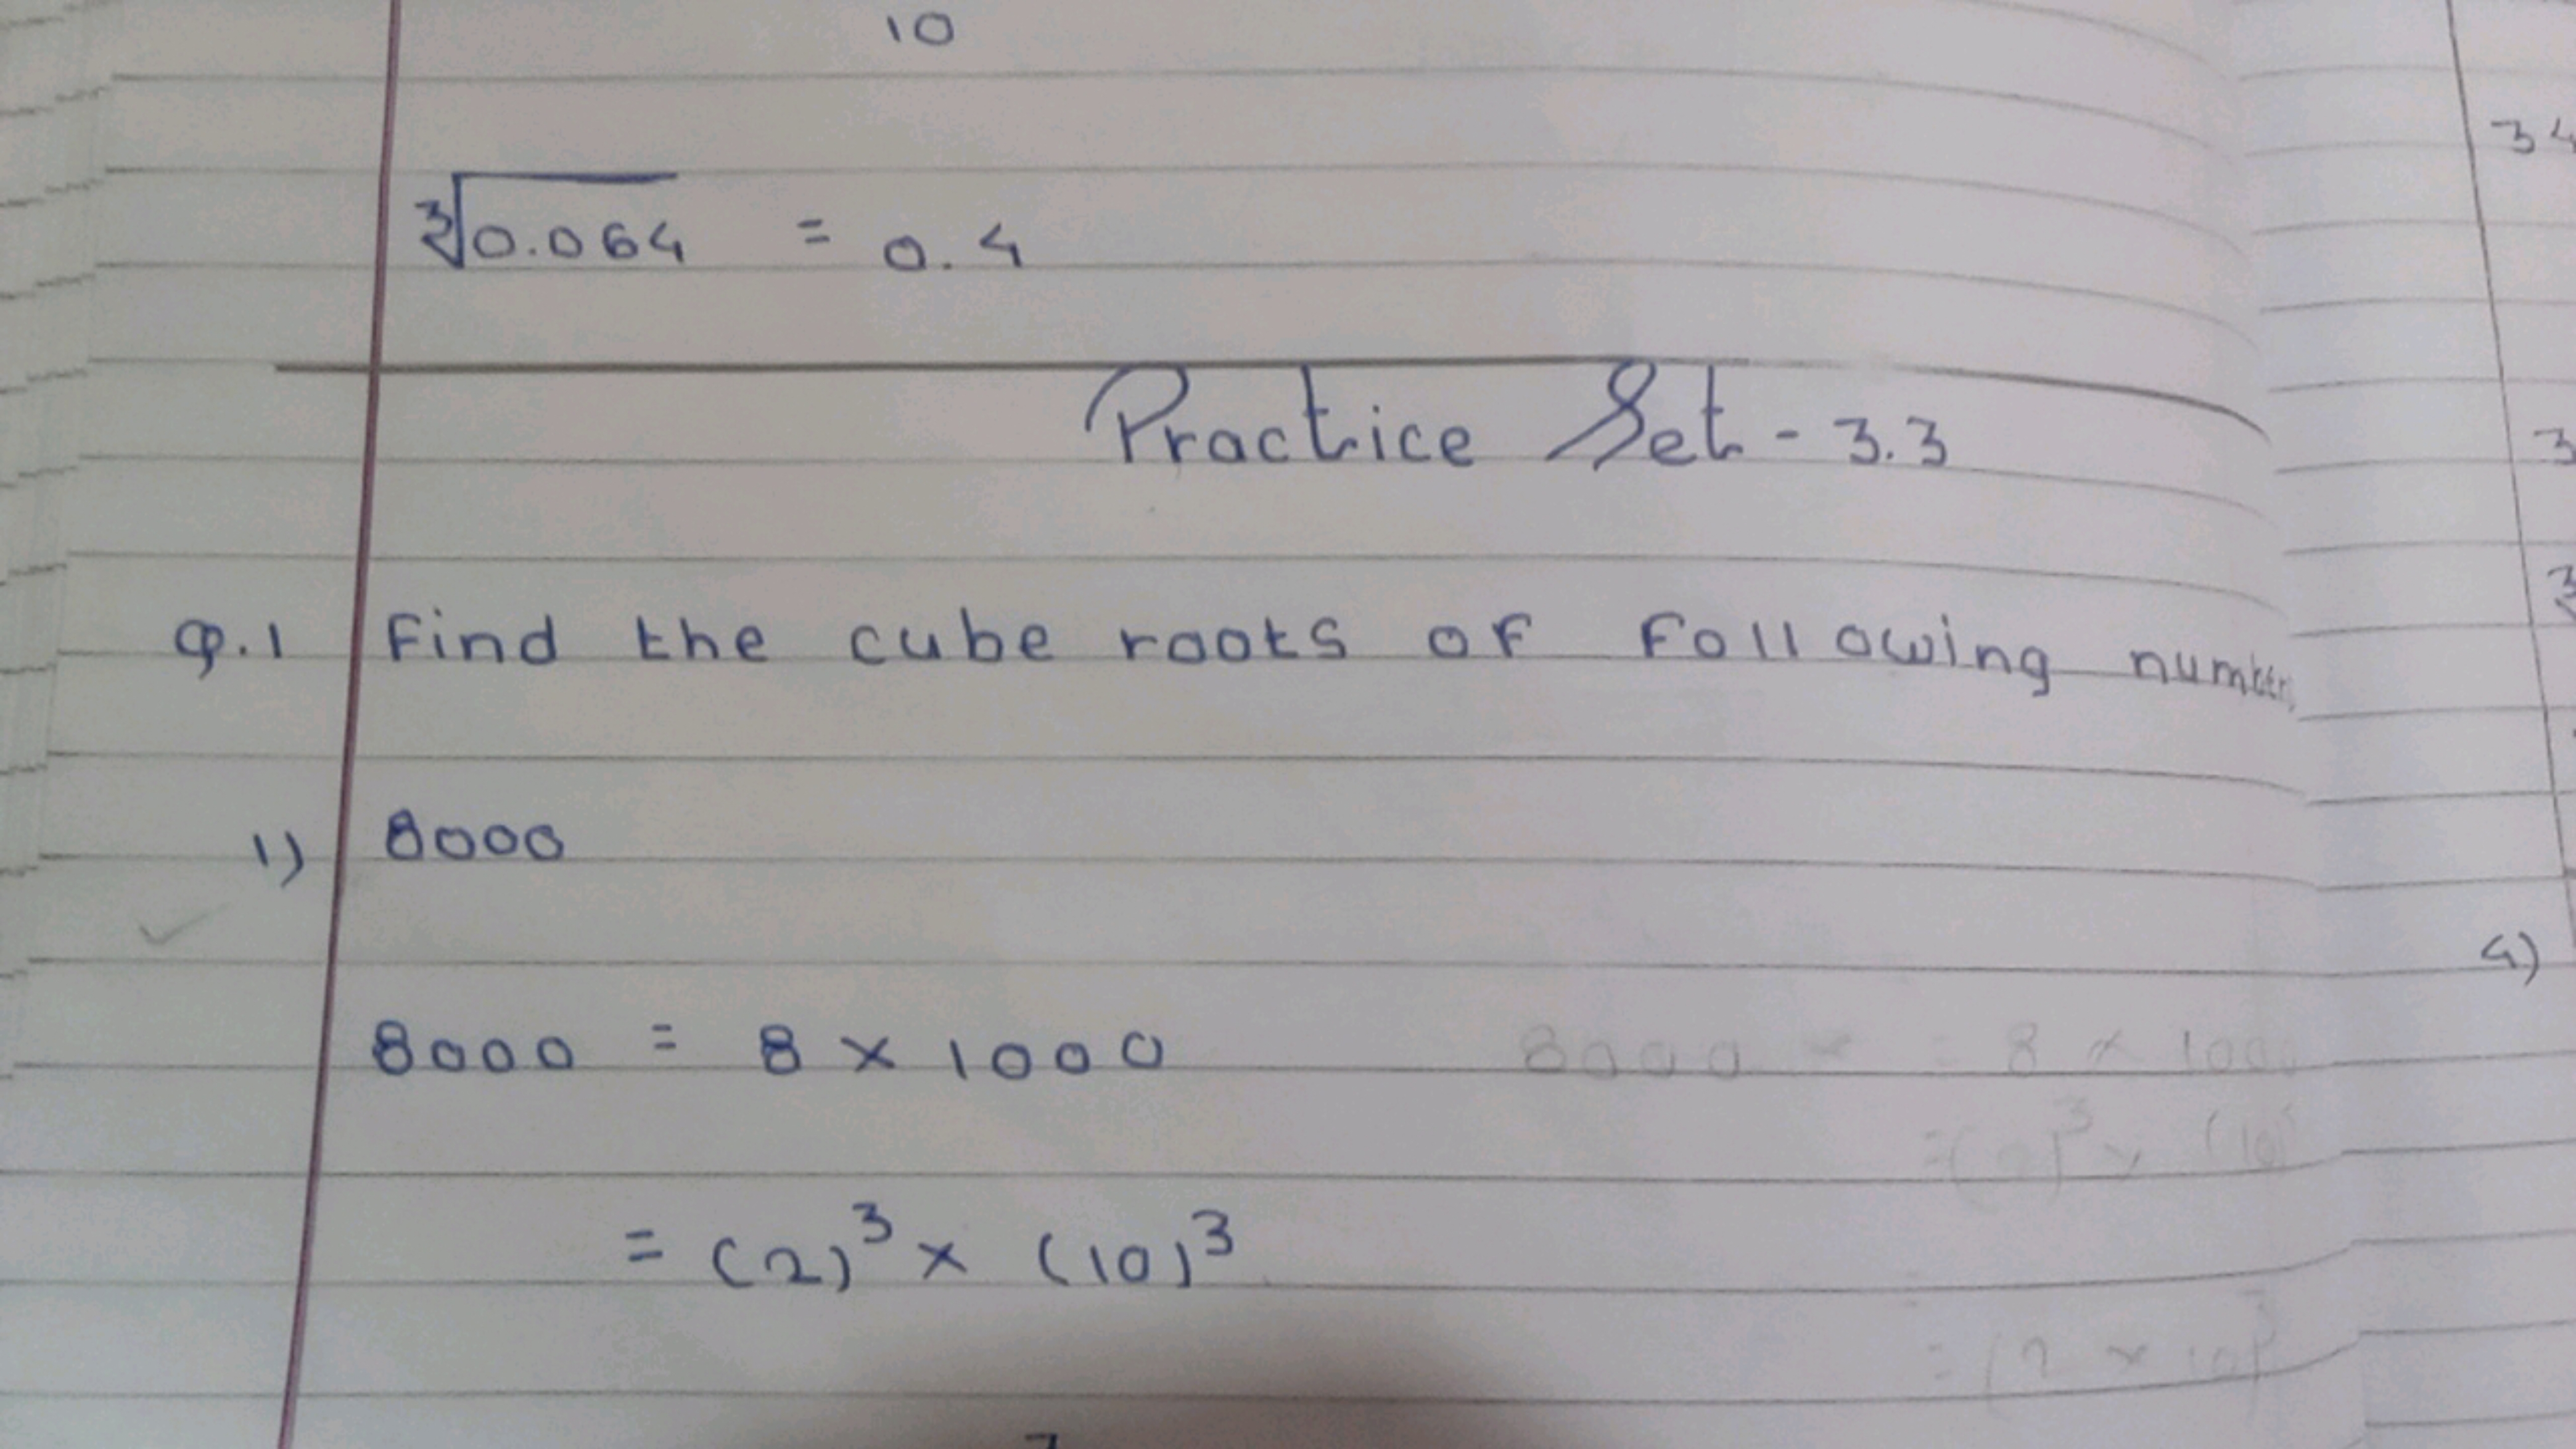 10
∛0.064 = 0.4
Practice Set - 3.3
Q.1 Find the cube roots of following number
1) 8000
8000 = 8 × 1000
= (2)³ × (10)³
8000 = 8 × 1000
= (2)³ × (10)
= (2 × 10)³
34
3
3
4)